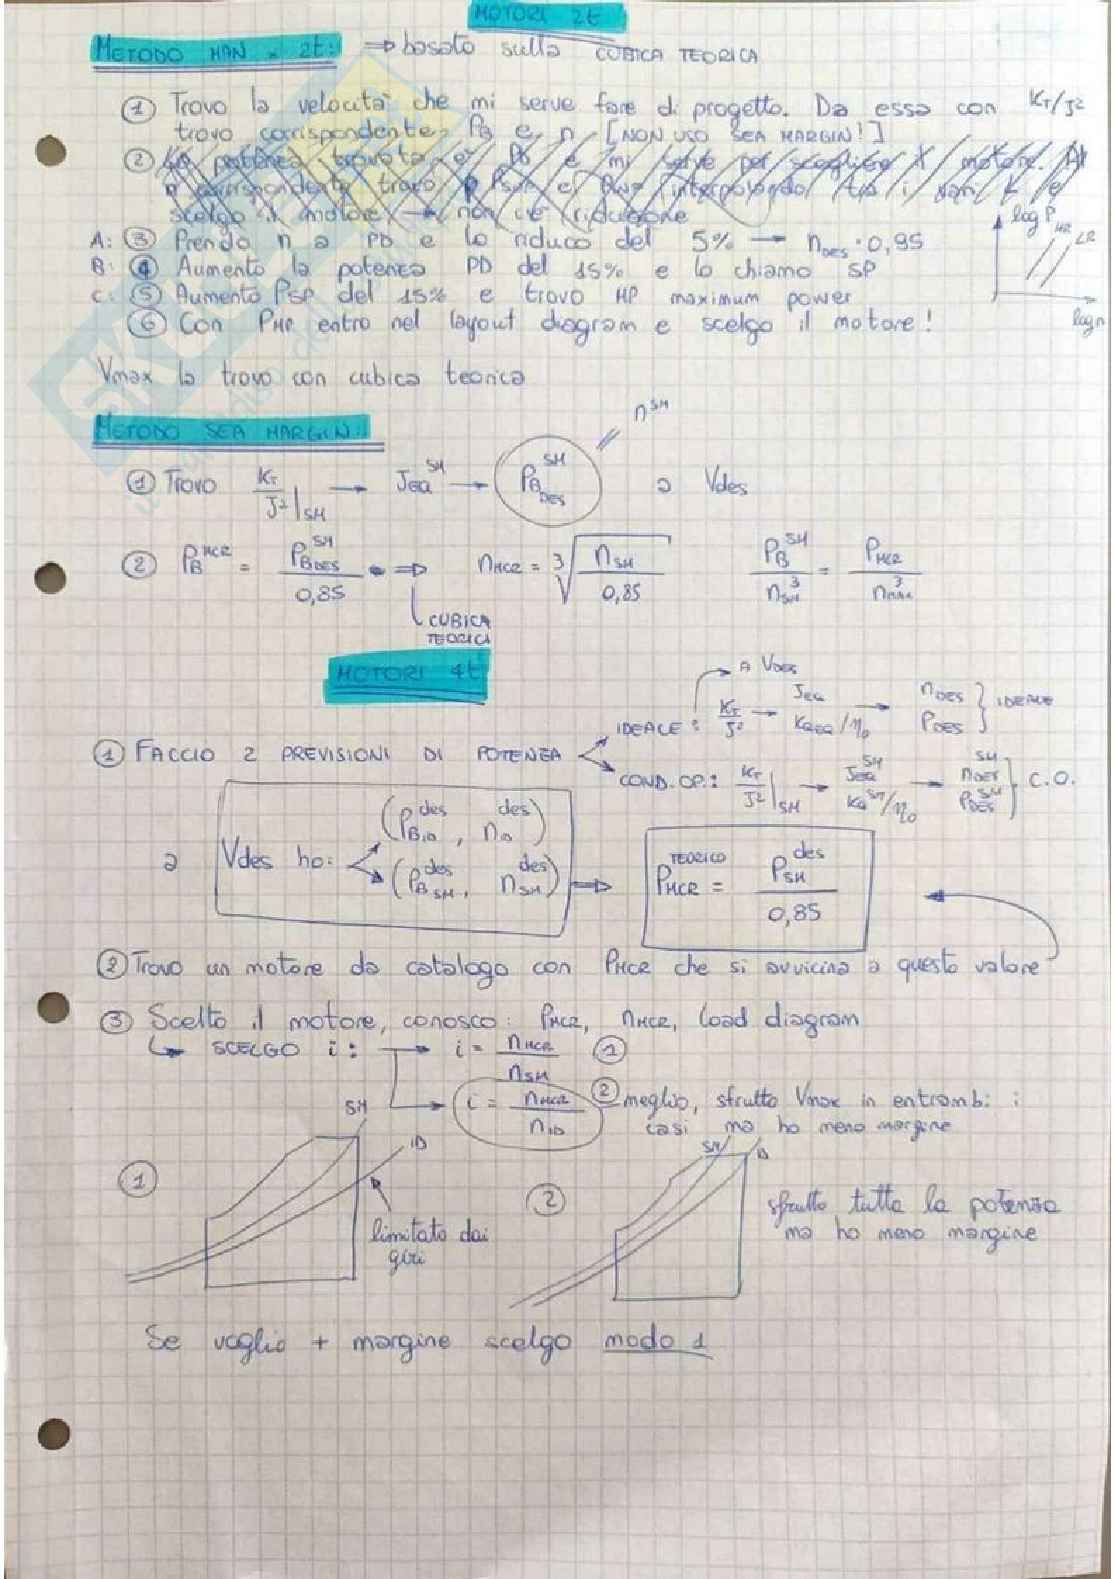 MOTORI 2t
METODO MAN - 2t: ⇒ basato sulla CUBICA TEORICA
① Trovo la velocità che mi serve fare di progetto. Da essa con KT/J²
trovo corrispondente PB e n [NON USO SEA MARGIN!]
② potenza trovata e mi serve per scegliere motore.
corrispondente trovo e interpolando tra i
scelgo il motore → non c'è riduzione
A: ③ Prendo n a PD e lo riduco del 5% → nDES · 0,95
B: ④ Aumento la potenza PD del 15% e lo chiamo SP
C: ⑤ Aumento PSP del 15% e trovo MP maximum power
⑥ Con PMP entro nel layout diagram e scelgo il motore!
log P
MR LR
log n
Vmax la trovo con cubica teorica
METODO SEA MARGIN:
① Trovo KT/J²|SM → JEQ^SM → PB DES^SM // n^SM a Vdes
② PB^MCR = PB DES^SM / 0,85 ⇒ nMCR = ∛(nSM / 0,85) PB^SM / nSM³ = PMCR / nMAX³
CUBICA
TEORICA
MOTORI 4t
① FACCIO 2 PREVISIONI DI POTENZA
A VDES
IDEALE: KT/J² → JEQ KQEQ/η0 → nDES PDES } IDEALE
COND. OP.: KT/J²|SM → JEQ^SM KQ^SM/η0 → nDES^SM PDES^SM } C.O.
a Vdes ho: (PB ID^des, nID^des)
(PB SM^des, nSM^des) ⇒ PMCR^TEORICO = PSM^des / 0,85
② Trovo un motore da catalogo con PMCR che si avvicina a questo valore
③ Scelto il motore, conosco: PMCR, nMCR, load diagram
↳ SCELGO i: → i = nMCR / nSM ①
→ i = nMCR / nID ② meglio, sfrutto Vmax in entrambi i
casi ma ho meno margine
① SM ID
limitato dai
giri
② SM ID
sfrutto tutta la potenza
ma ho meno margine
Se voglio + margine scelgo modo 1